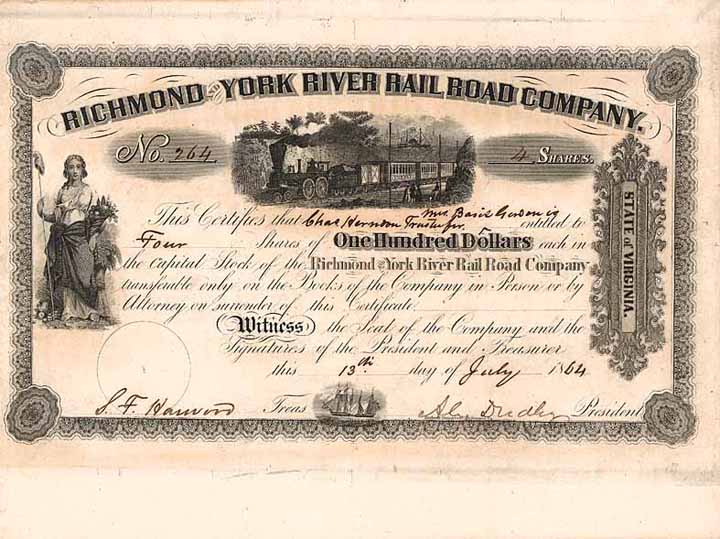 RICHMOND AND YORK RIVER RAIL ROAD COMPANY.
No. 264
4 SHARES.
Mrs. Basil Gordon is
This Certifies that Chas Herndon Trustee for entitled to
Four Shares of One Hundred Dollars each in
the Capital Stock of the Richmond and York River Rail Road Company
transferable only on the Books of the Company in Person or by
Attorney on surrender of this Certificate.
Witness the Seal of the Company and the
Signatures of the President and Treasurer
this 13th day of July 1864
S. F. Harwood Treas
Alex Dudley President
STATE of VIRGINIA.